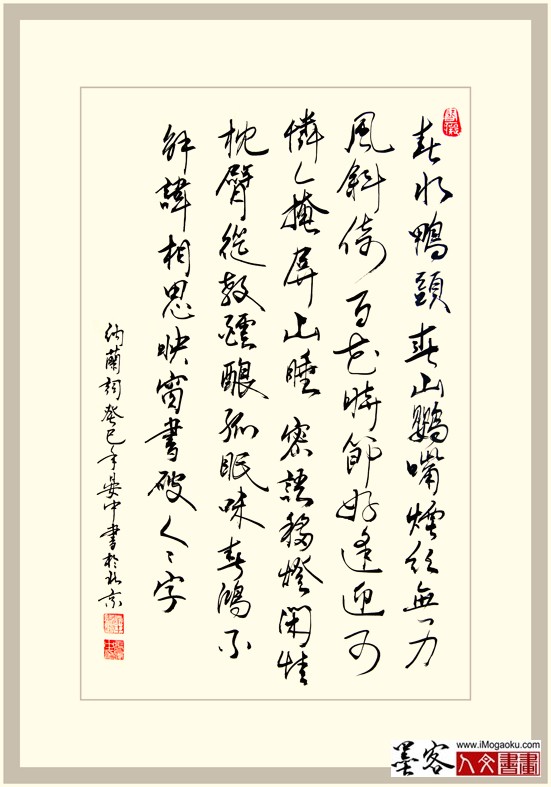 春水鴨頭春山鸚嘴煙絲無力
風斜倚百花時節好逢迎可
憐人掩屏山睡密語移燈閑情
枕臂從教醞釀孤眠味春鴻不
解諱相思映窗書破人々字
納蘭詞癸巳年晏中書於北京
墨客
www.iMogaoku.com
人文書畫